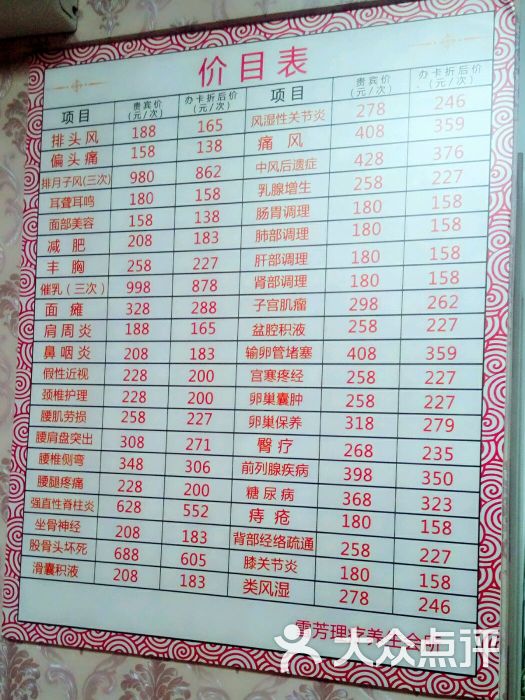 价目表
项目 贵宾价(元/次) 办卡折后价(元/次) 项目 贵宾价(元/次) 办卡折后价(元/次)
排头风 188 165 风湿性关节炎 278 246
偏头痛 158 138 痛风 408 359
排月子风(三次) 980 862 中风后遗症 428 376
耳聋耳鸣 180 158 乳腺增生 258 227
面部美容 158 138 肠胃调理 180 158
减肥 208 183 肺部调理 180 158
丰胸 258 227 肝部调理 180 158
催乳(三次) 998 878 肾部调理 180 158
面瘫 328 288 子宫肌瘤 298 262
肩周炎 188 165 盆腔积液 258 227
鼻咽炎 208 183 输卵管堵塞 408 359
假性近视 228 200 宫寒疼经 258 227
颈椎护理 228 200 卵巢囊肿 258 227
腰肌劳损 258 227 卵巢保养 318 279
腰肩盘突出 308 271 臀疗 268 235
腰椎侧弯 348 306 前列腺疾病 398 350
腰腿疼痛 228 200 糖尿病 368 323
强直性脊柱炎 628 552 痔疮 180 158
坐骨神经 208 183 背部经络疏通 258 227
股骨头坏死 688 605 膝关节炎 180 158
滑囊积液 208 183 类风湿 278 246
大众点评